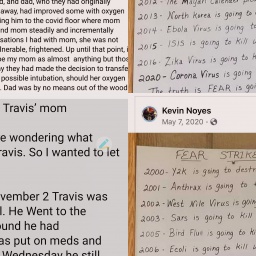 d, and dad, who they had originally
away, had improved some with oxygen
ing him to the covid floor where mom
nd mom steadily and incrementally
sations I had with mom, she was not
lnerable, frightened. Up until that point, i
be my mom as almost anything but tho
y they had made the decision to transfe
possible intubation, should her oxygen
. Dad was by no means out of the wood
Travis' mom
e wondering what
ravis. So I wanted to let
vember 2 Travis was
l. He Went to the
ound he had
as put on meds and
Wednesday he still
2012 - The Mayan Calender
2013 - North Korea is going to
2014 - Ebola Virus is going to
2015 - ISIS is going to kill u
2016 - Zika Virus is going to k
2020 - Corona Virus is going
The truth is FEAR is go
Kevin Noyes
May 7, 2020 ·
FEAR STRIKE
2000 - Y2K is going to destr
2001 - Anthrax is going to k
2002 - West Nile Virus is going
2003 - Sars is going to Kill
2005 - Bird Flu is going to Ki
2006 - Ecoli is going to kill u